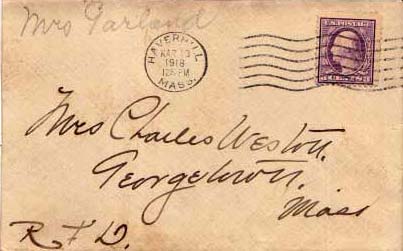 Mrs Garland
HAVERHILL
MAR 13
1918
12 PM
MASS.
Mrs Charles Weston.
Georgetown.
Mass
R. F. D.